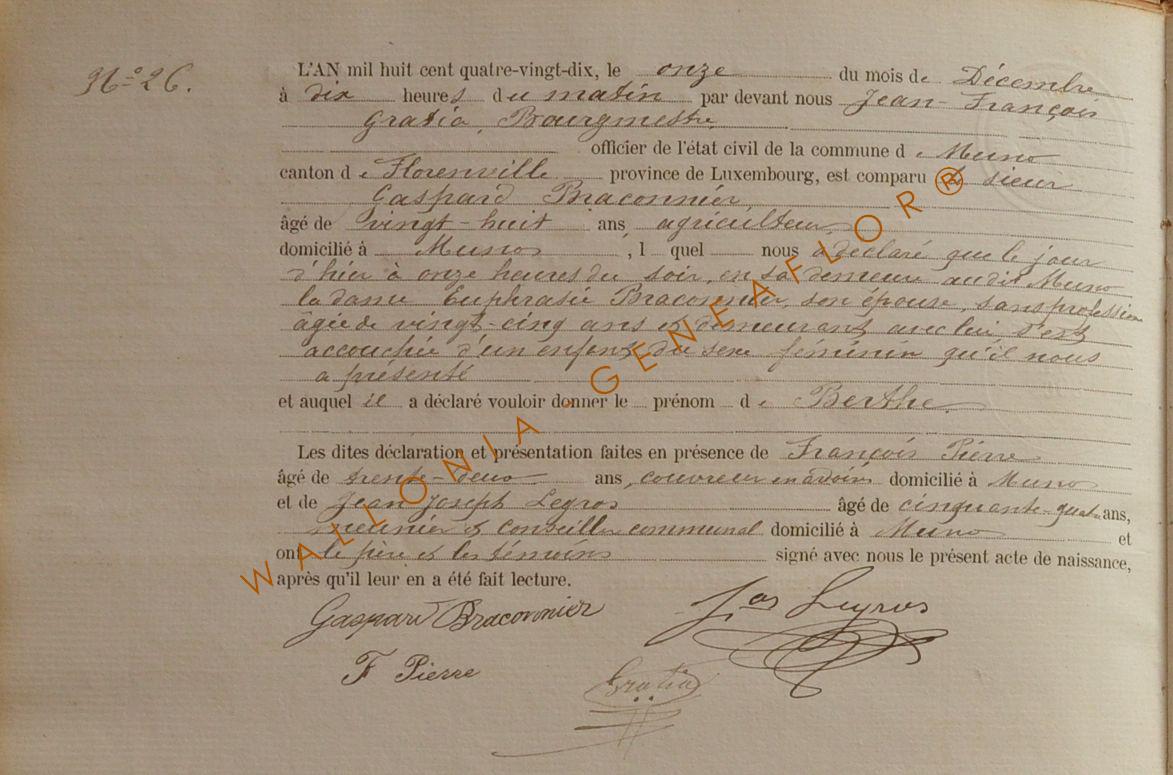 N° 26.
L'AN mil huit cent quatre-vingt-dix, le onze du mois de Décembre
à dix heures du matin par devant nous Jean-François
Gratia, Bourgmestre,
officier de l'état civil de la commune de Muno
canton de Florenville province de Luxembourg, est comparu le sieur
Gaspard Braconnier,
âgé de vingt-huit ans agriculteur,
domicilié à Muno, lequel nous a déclaré que le jour
d'hier à onze heures du soir, en sa demeure audit Muno
la dame Euphrasie Braconnier, son épouse, sans profession
âgée de vingt-cinq ans et demeurant avec lui, s'est
accouchée d'un enfant du sexe féminin qu'il nous
a présenté
et auquel il a déclaré vouloir donner le prénom de Berthe.
Les dites déclaration et présentation faites en présence de François Pierre
âgé de trente-deux ans, couvreur en ardoises domicilié à Muno
et de Jean Joseph Legros âgé de cinquante-quatre ans,
meunier et conseiller communal domicilié à Muno et
ont le père et les témoins signé avec nous le présent acte de naissance,
après qu'il leur en a été fait lecture.
Gaspard Braconnier Jos Legros
F Pierre Gratia
WALLONIA - GENEAFLOR®